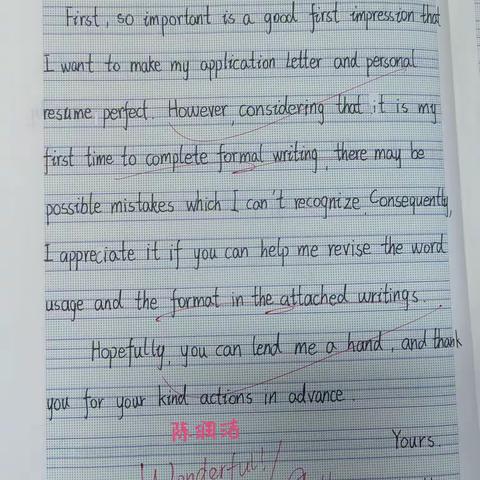 First, so important is a good first impression that
I want to make my application letter and personal
resume perfect. However, considering that it is my
first time to complete formal writing, there may be
possible mistakes which I can't recognize. Consequently,
I appreciate it if you can help me revise the word
usage and the format in the attached writings.
Hopefully, you can lend me a hand, and thank
you for your kind actions in advance.
陈
Yours.
Wonderful!